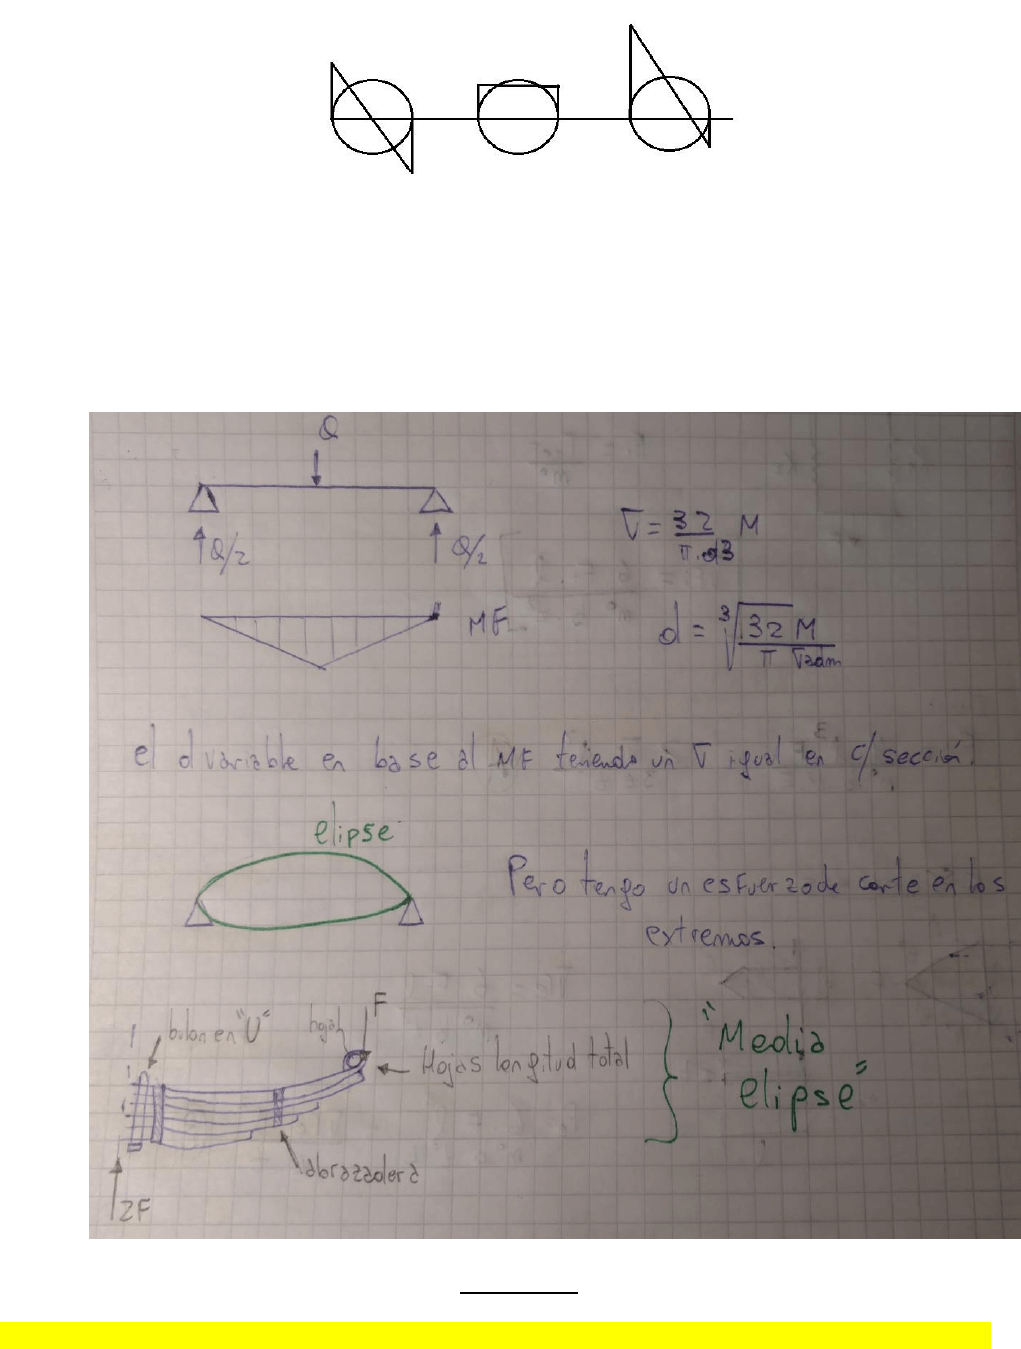 Q
Q/2
Q/2
σ = 32 M
π.d3
MF
d = 3√ 32 M
π σadm
el d variable en base al MF teniendo un σ igual en c/ sección.
elipse
Pero tengo un esfuerzo de corte en los
extremos.
F
bulon en "U"
Hojas longitud total
"Media
elipse"
abrazadera
2F